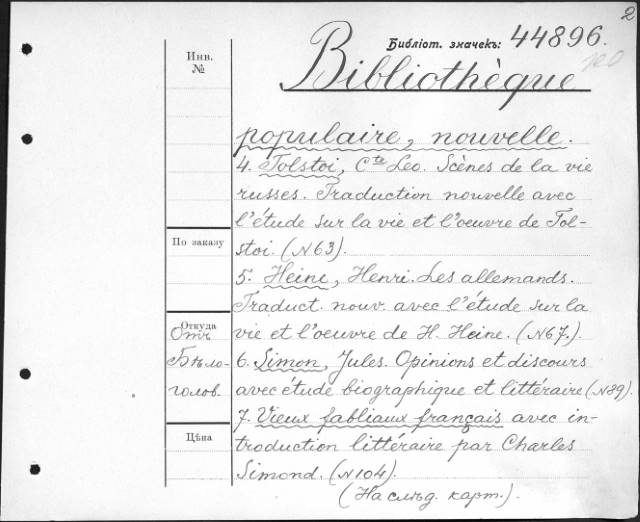 2
Библіот. значекъ: 44896.
Инв.
№
Bibliothèque
populaire, nouvelle.
4. Tolstoi, Cte Leo. Scènes de la vie
russes. Traduction nouvelle avec
l'étude sur la vie et l'oeuvre de Tol-
stoi. (N63).
По заказу
5. Heine, Henri. Les allemands.
Traduct. nouv. avec l'étude sur la
vie et l'oeuvre de H. Heine. (N67.)
Откуда
Отъ
Бѣло-
голов.
6. Simon, Jules. Opinions et discours
avec étude biographique et littéraire (N89).
7. Vieux fabliaux français avec in-
troduction littéraire par Charles
Simond. (N104).
Цѣна
(На слѣд. карт.).